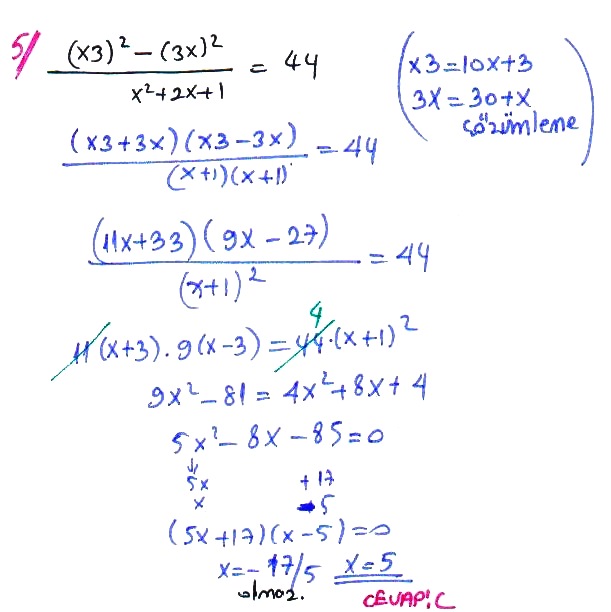 5/ (x3)² − (3x)² / x²+2x+1 = 44
(x3=10x+3
3x=30+x
çözümleme)
(x3+3x)(x3−3x) / (x+1)(x+1) = 44
(11x+33)(9x−27) / (x+1)² = 44
4
11(x+3).9(x−3)=44.(x+1)²
9x²−81=4x²+8x+4
5x²−8x−85=0
↓
5x +17
x −5
(5x+17)(x−5)=0
x=−17/5 x=5
olmaz.
CEVAP: C